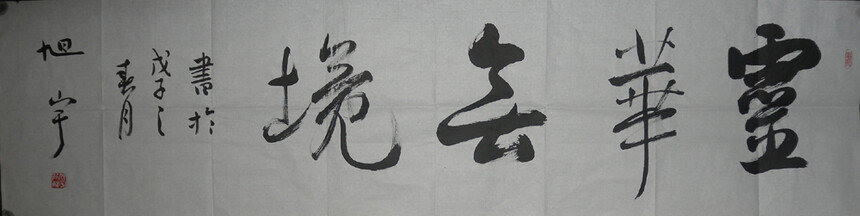 靈華無境
書於
戊子之
春月
旭宇